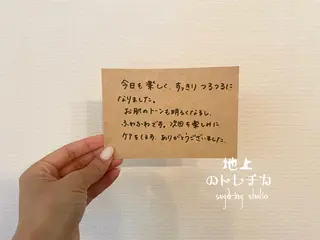 今日も楽しく、すっきり つるつるに
なりました。
お肌のトーンも明るくなるし、
ふわふわです。次回も楽しみに
ケアをします。ありがとうございました。
地上
のトレチカ
sugaring studio